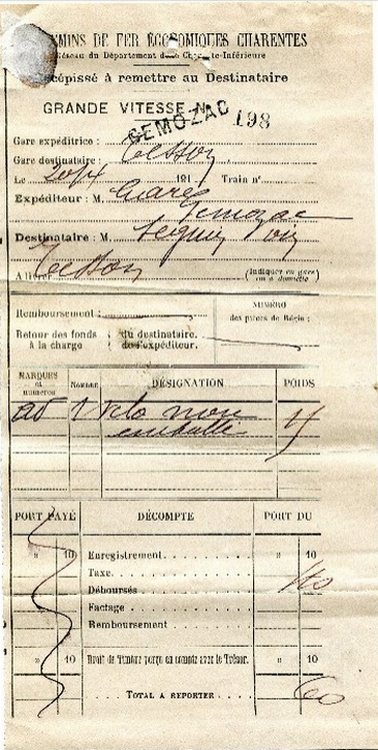 EMINS DE FER ÉCONOMIQUES CHARENTES
Réseau du Département de la Charente-Inférieure
cépissé à remettre au Destinataire
GRANDE VITESSE N° 198
GEMOZAC
Gare expéditrice :
Gare destinataire : Tesson
Le 191 Train n°
Expéditeur : M. Gare
Gemozac
Destinataire : M. Seguin
A livrer Tesson (indiquer en gare ou à domicile)
Remboursement :
Retour des fonds à la charge { du destinataire. de l'expéditeur.
NUMÉRO
des pièces de Régie :
MARQUES et numéros Nombre DÉSIGNATION POIDS
1 Vélo non
emballé
PORT PAYÉ DÉCOMPTE PORT DU
» 10 Enregistrement » 10
Taxe
Déboursés
Factage
Remboursement
» 10 Droit de Timbre perçu en compte avec le Trésor. » 10
TOTAL A REPORTER 60